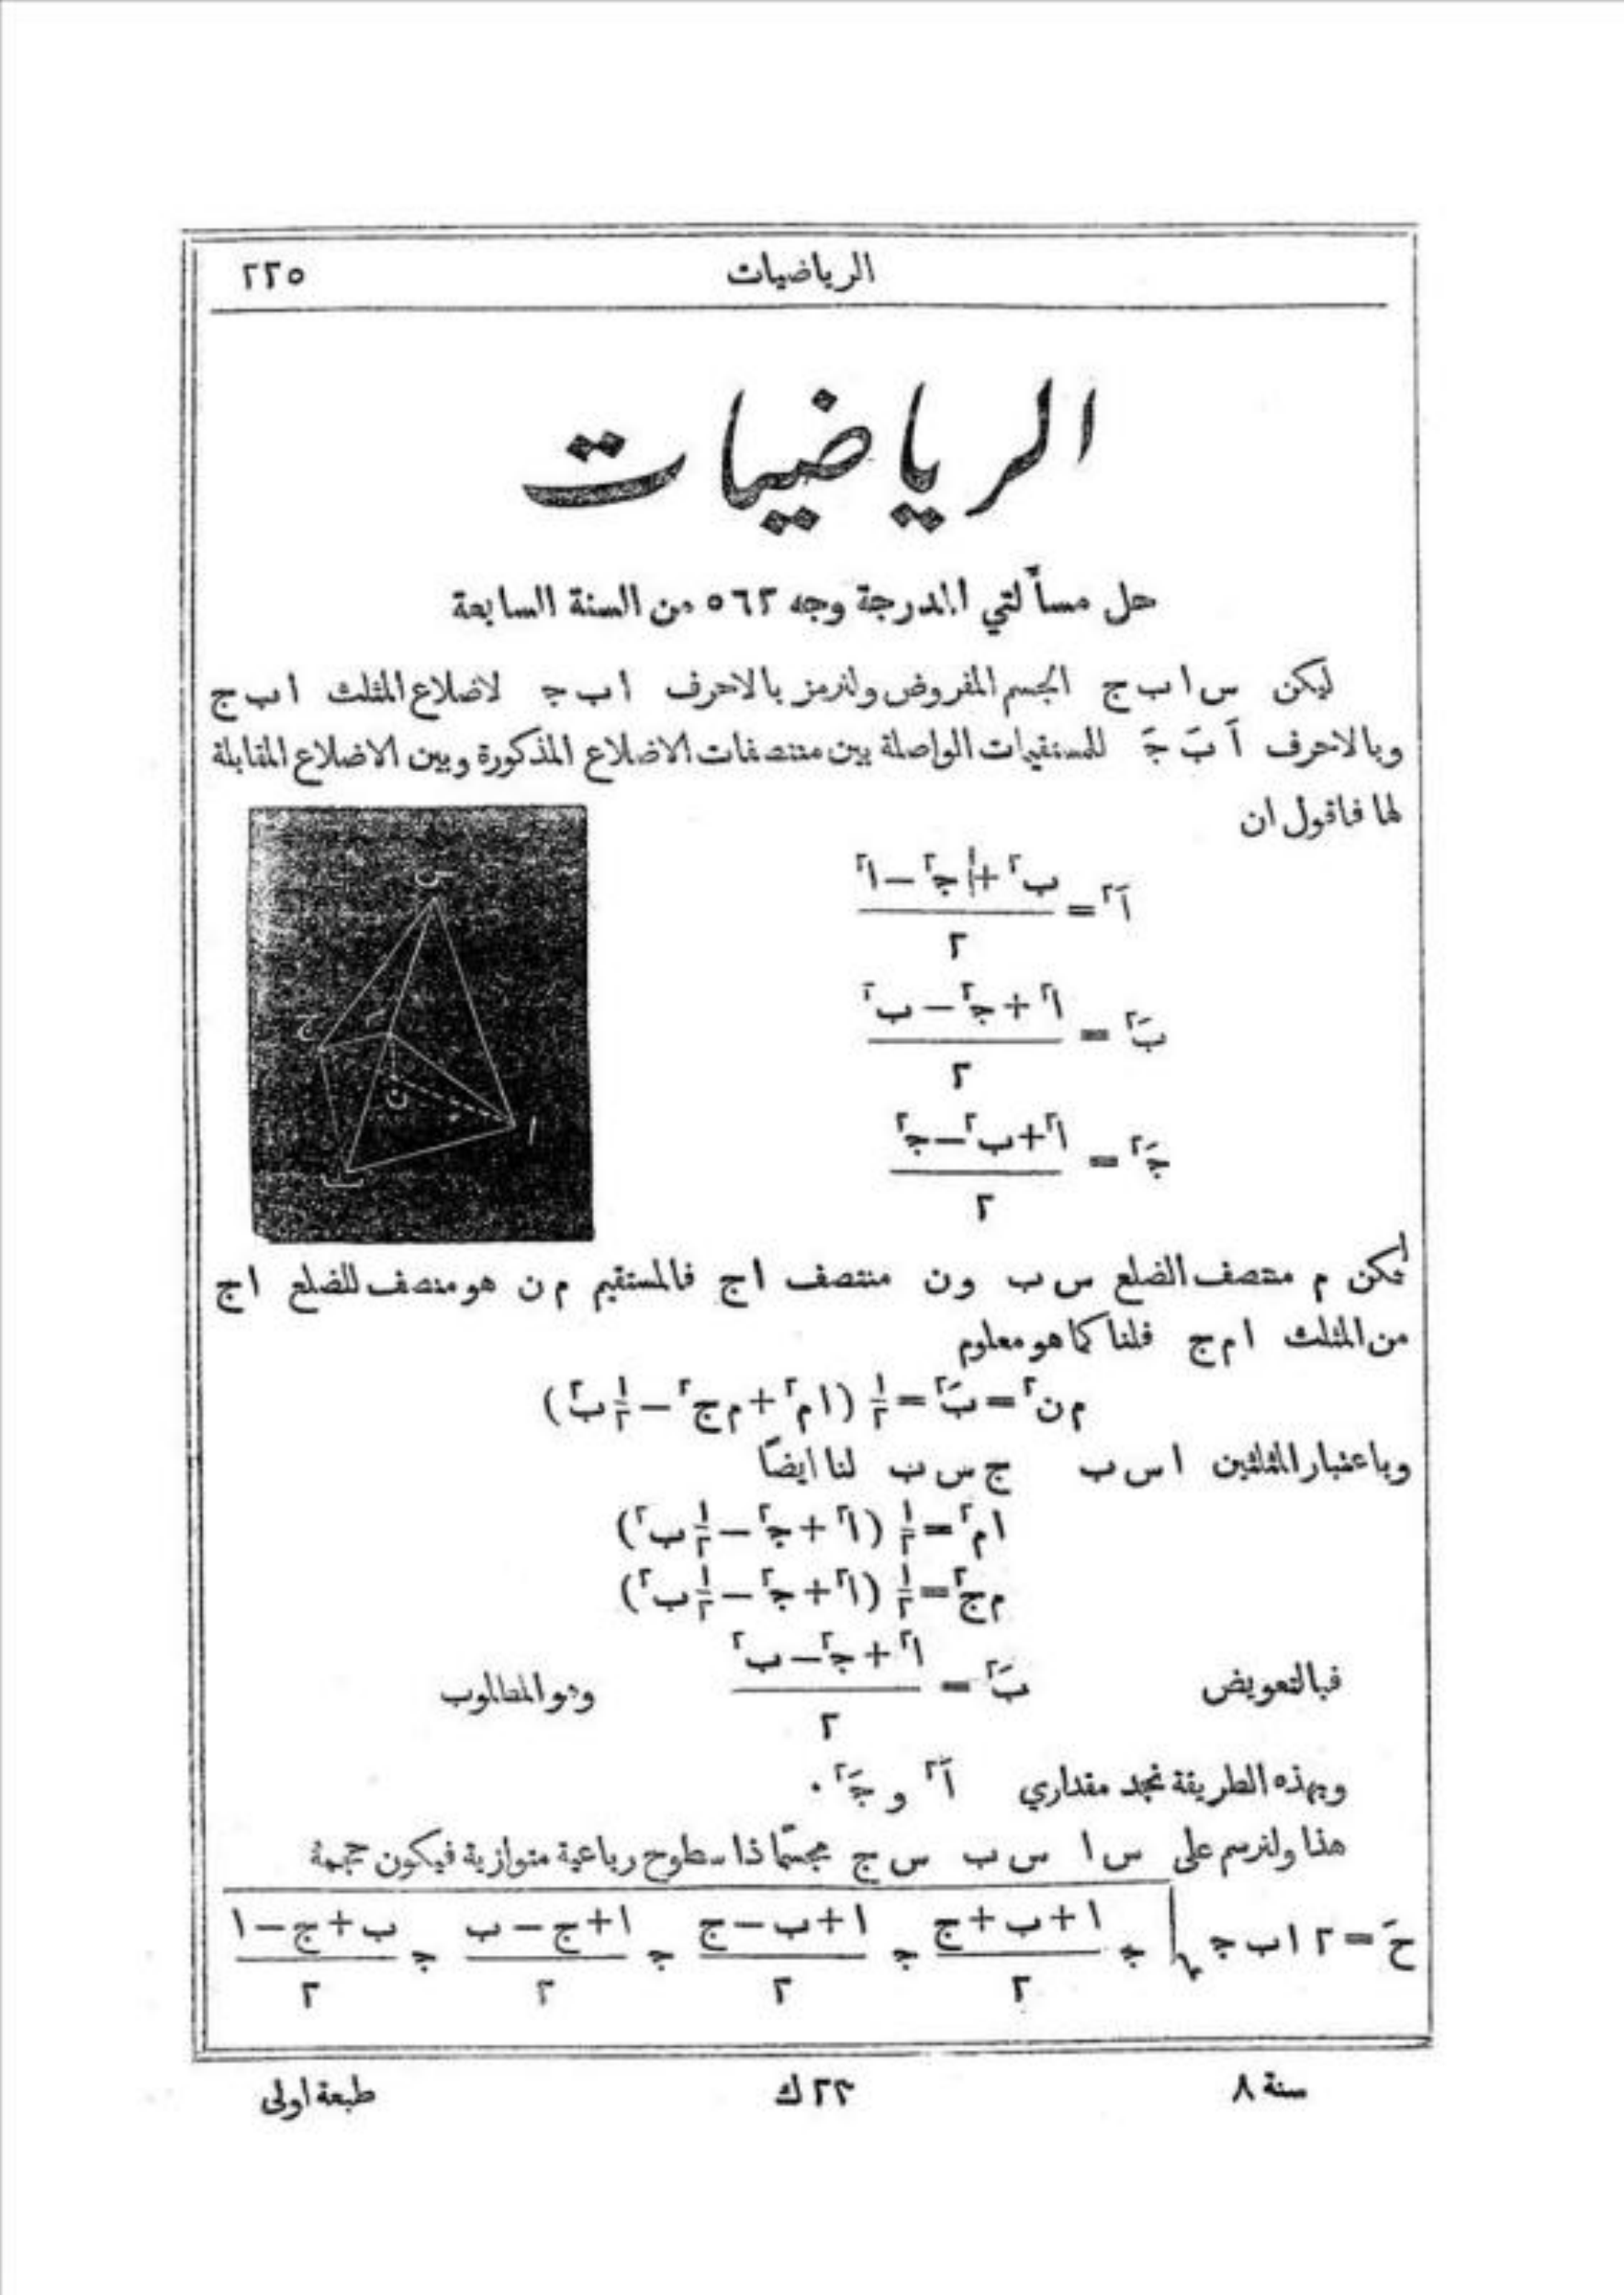 الرياضيات ٢٢٥
الرياضيات
حل مسألتي المدرجة وجه ٥٦٢ من السنة السابعة
ليكن س ا ب ج الجسم المفروض ولنرمز بالاحرف ا ب جـ لاضلاع المثلث ا ب ج
وبالاحرف اَ بَ جَـ للمستقيمات الواصلة بين منتصفات الاضلاع المذكورة وبين الاضلاع المقابلة
لها فاقول ان
اَ٢ = (ب٢ + جـ٢ − ا٢) / ٢
بَ٢ = (ا٢ + جـ٢ − ب٢) / ٢
جَـ٢ = (ا٢ + ب٢ − جـ٢) / ٢
س
ج م
ن
ا
ب
ليكن م منتصف الضلع س ب و ن منتصف ا ج فالمستقيم م ن هو منصف للضلع ا ج
من المثلث ا م ج فلنا كما هو معلوم
م ن٢ = بَ٢ = ١/٢ (ا م٢ + م ج٢ − ١/٢ ب٢)
وباعتبار المثلثين ا س ب ج س ب لنا ايضًا
ا م٢ = ١/٢ (ا٢ + جـ٢ − ١/٢ ب٢)
م ج٢ = ١/٢ (ا٢ + جـ٢ − ١/٢ ب٢)
فبالتعويض بَ٢ = (ا٢ + جـ٢ − ب٢) / ٢ وهو المطلوب
وبهذه الطريقة نجد مقداري اَ٢ و جَـ٢ ٠
هذا ولنرسم على س ا س ب س ج مجسمًا ذا سطوح رباعية متوازية فيكون حجمهُ
حَ = ٢ ا ب جـ √ جـ (ا + ب + ج) / ٢ جـ (ا + ب − ج) / ٢ جـ (ا + ج − ب) / ٢ جـ (ب + ج − ا) / ٢
سنة ٨ ٢٢ ك طبعة اولى